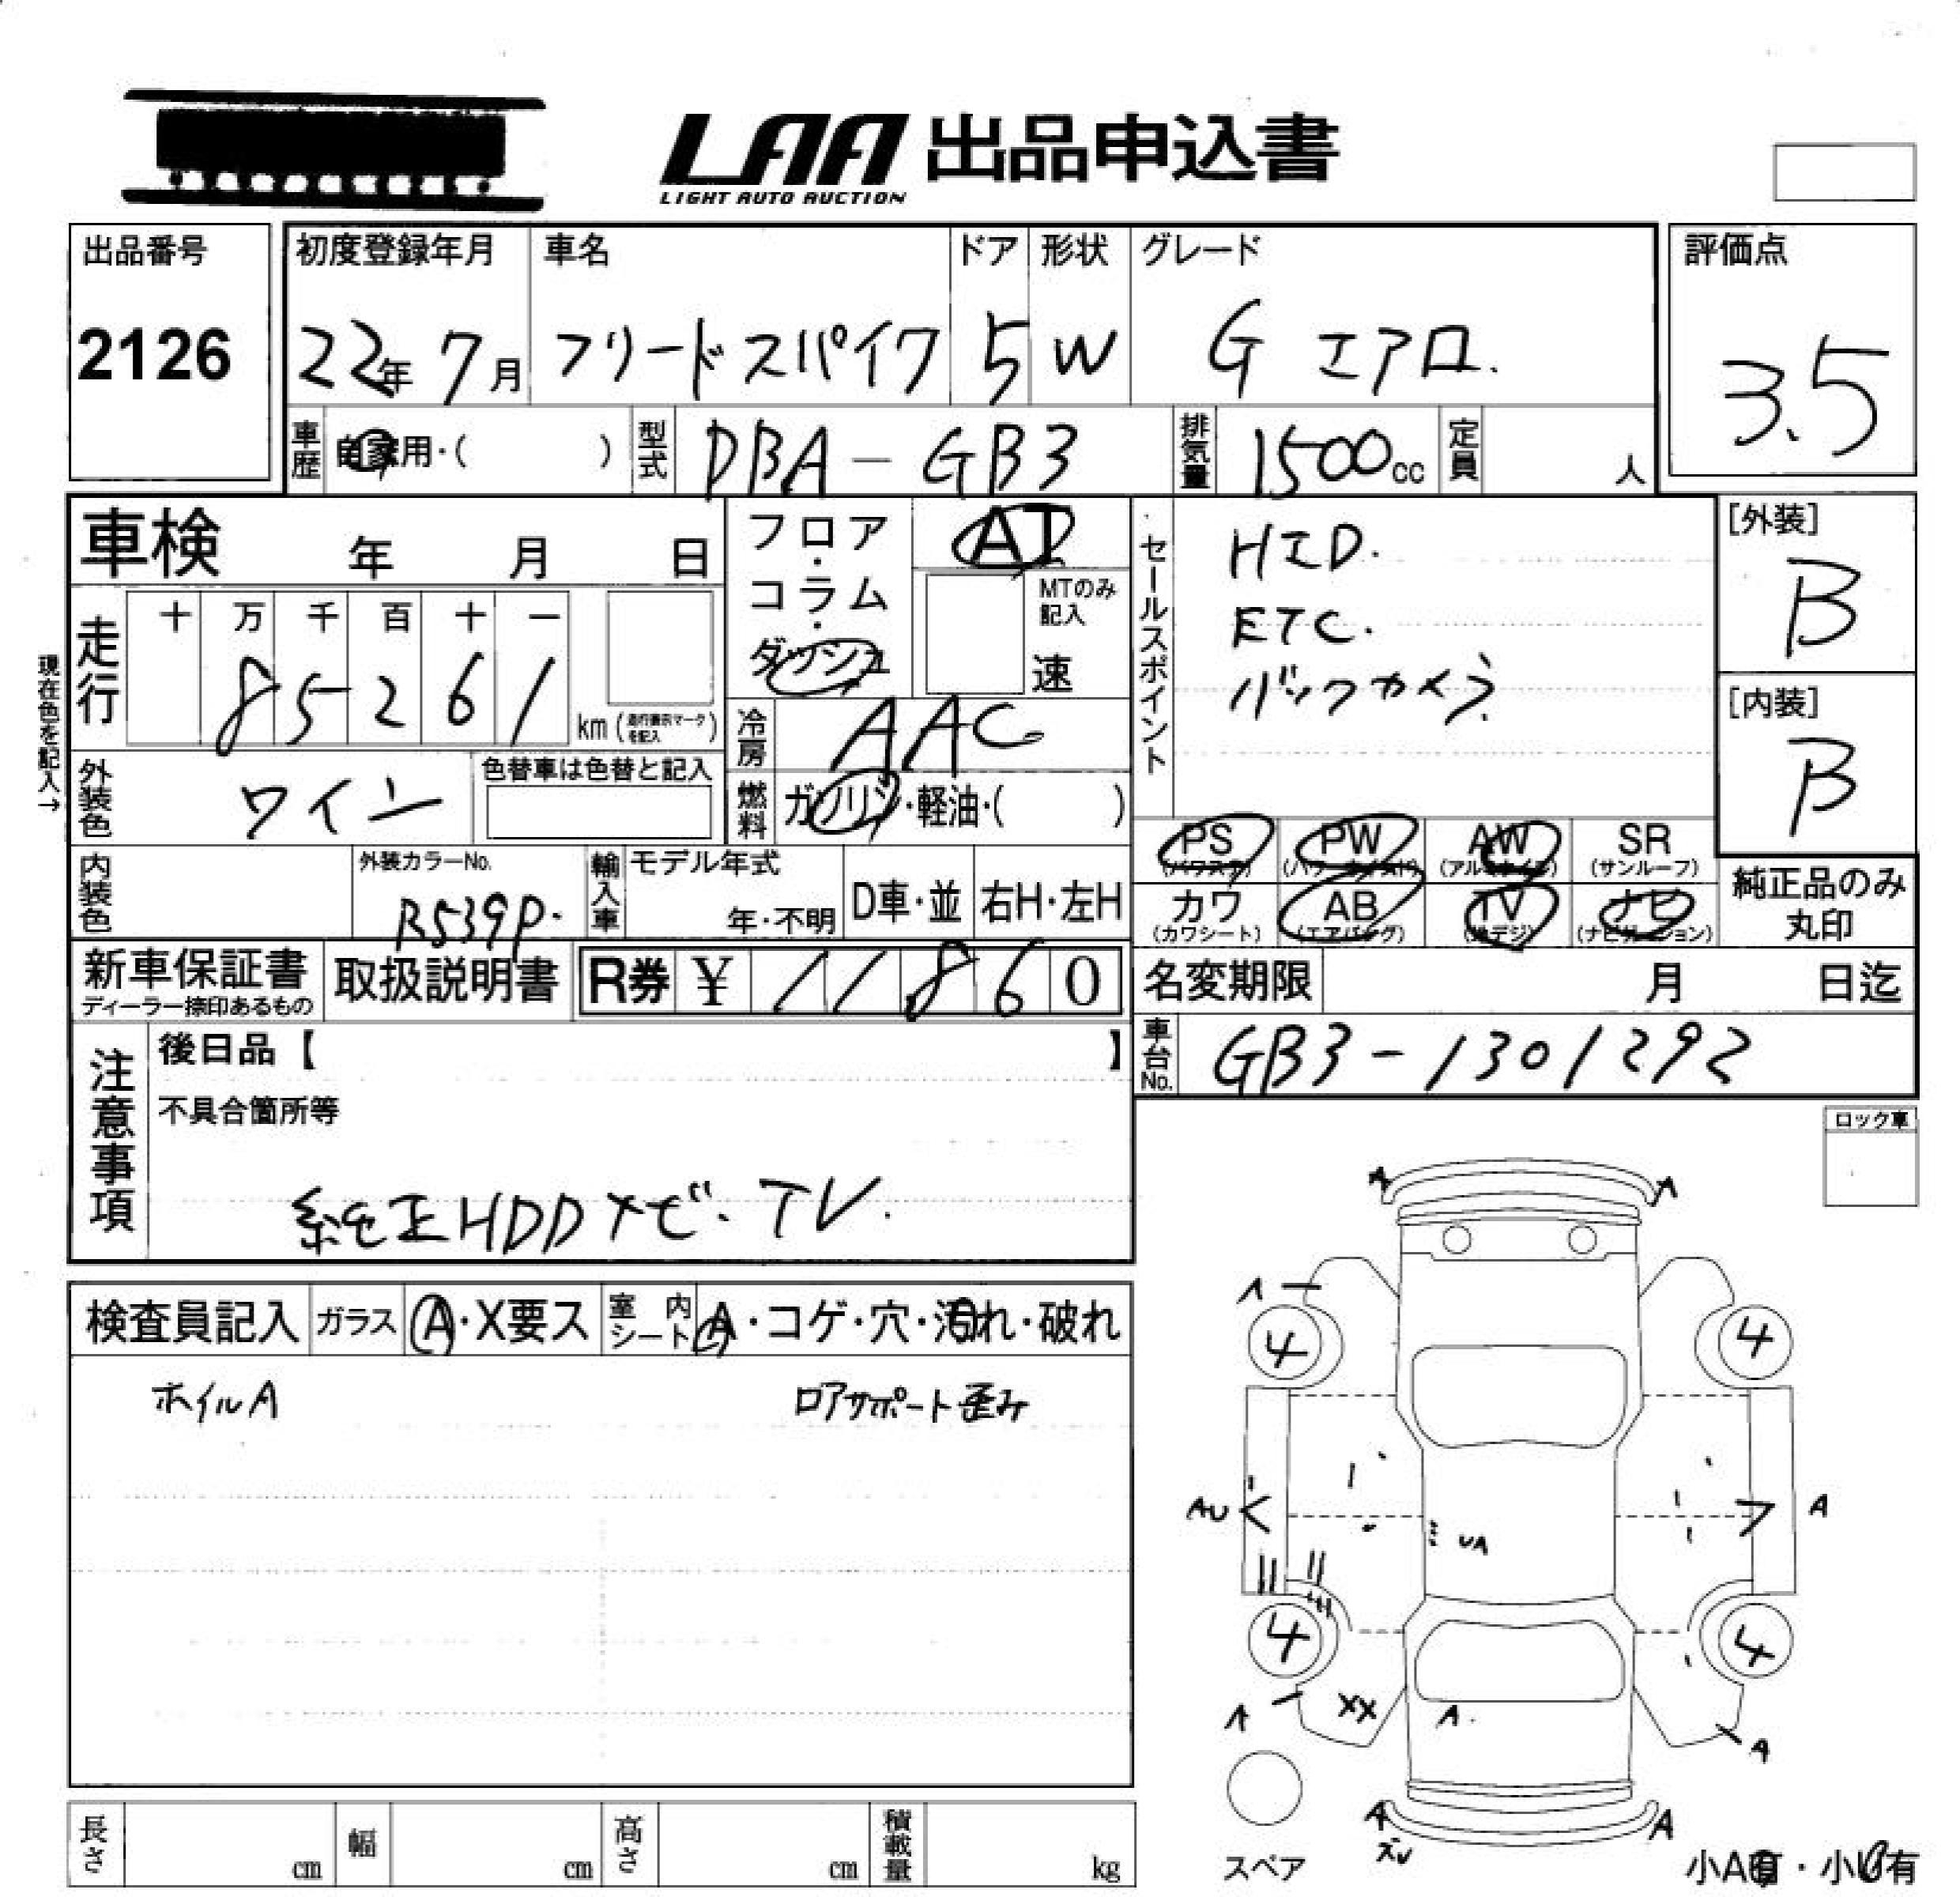 LAA 出品申込書
LIGHT AUTO AUCTION
出品番号 初度登録年月 車名 ドア 形状 グレード 評価点
2126 22年 7月 フリードスパイク 5 W G エアロ. 3.5
車歴 自家用・( ) 型式 DBA-GB3 排気量 1500cc 定員 人
車検 年 月 日
フロア・コラム・ダッシュ
AT
MTのみ記入
速
走行 十 万 千 百 十 一
85261
km (走行表示マークを記入)
現在色を記入→
外装色 ワイン
色替車は色替と記入
冷房 AAC
燃料 ガソリン・軽油・( )
セールスポイント
HID.
ETC.
バックカメラ
[外装]
B
[内装]
B
PS (パワステ) PW (パワーウインド) AW (アルミホイル) SR (サンルーフ)
カワ (カワシート) AB (エアバッグ) TV (地デジ) ナビ (ナビゲーション)
純正品のみ
丸印
内装色
外装カラーNo.
R539P.
輸入車 モデル年式
年・不明 D車・並 右H・左H
新車保証書 取扱説明書 R券 ¥ 11860
ディーラー捺印あるもの
名変期限 月 日迄
車台No. GB3-1301292
注意事項
後日品【 】
不具合箇所等
純正HDDナビ・TV.
ロック車
検査員記入 ガラス A・X要ス 室内シート A・コゲ・穴・汚れ・破れ
ホイルA ロアサポート歪み
A A
A
4 4
AU A
UA
4 4
A XX A. A
A A
スペア
小A有・小U有
長さ cm 幅 cm 高さ cm 積載量 kg